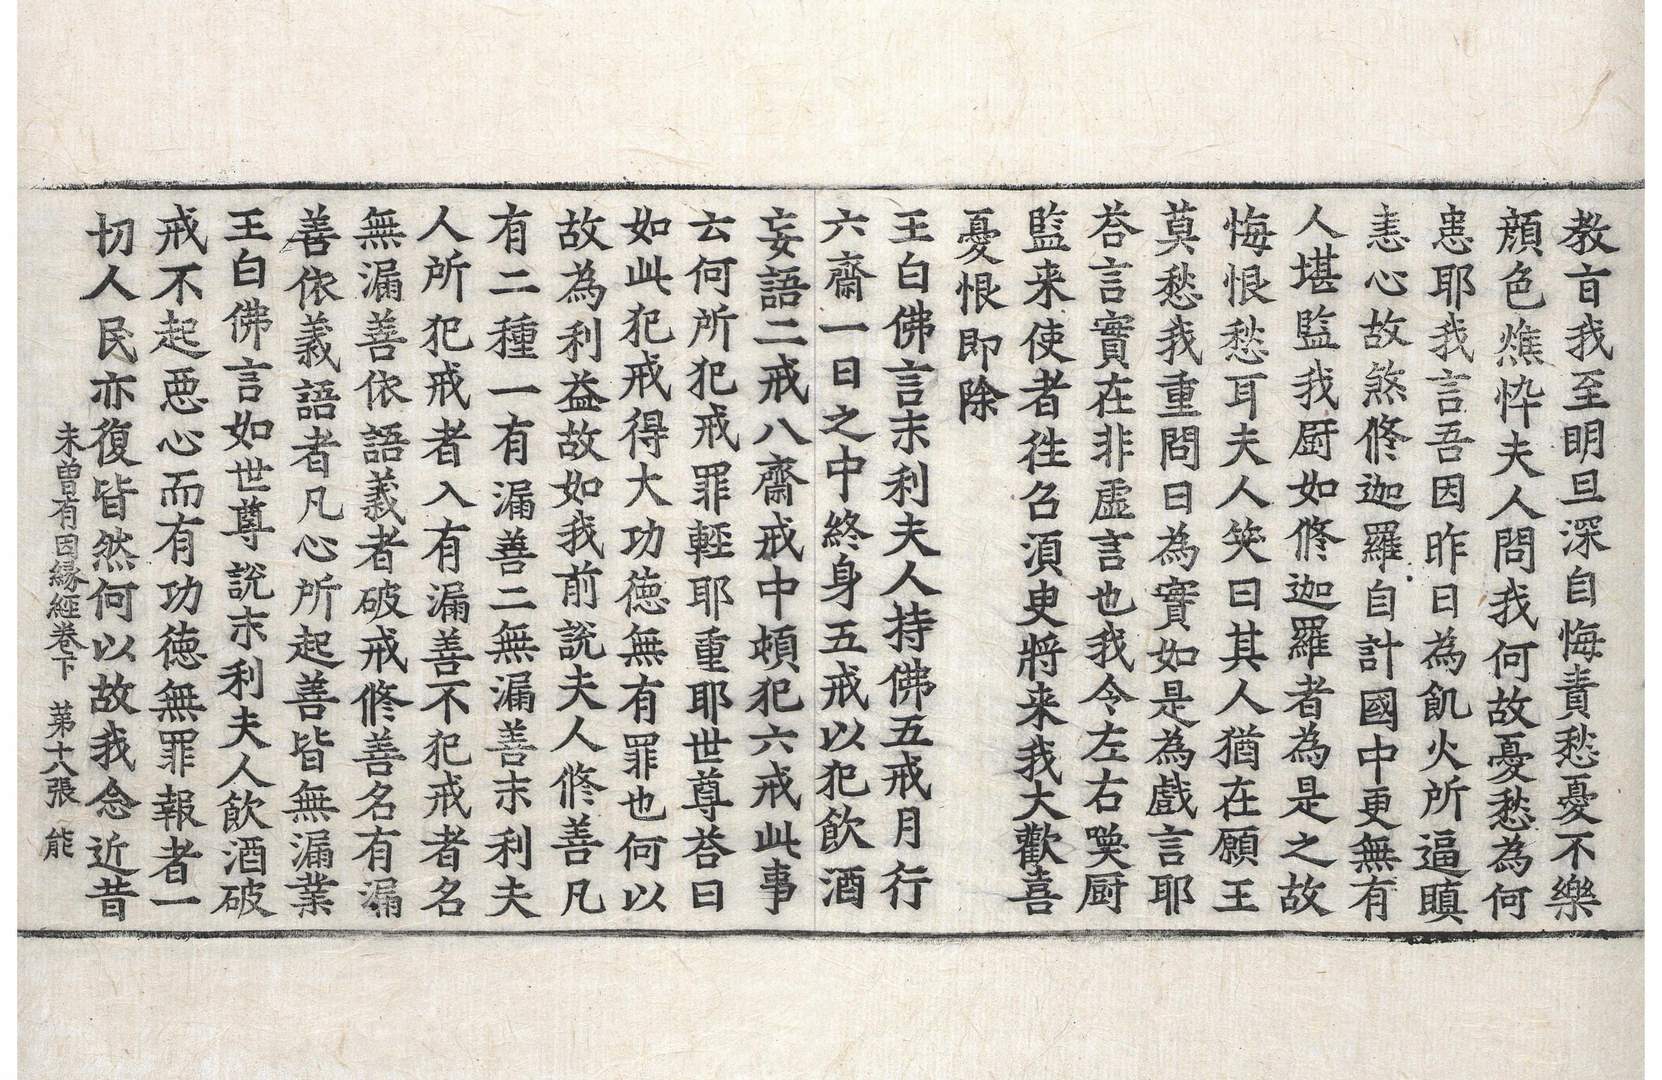 教旨我至明旦深自悔責愁憂不樂
顔色燋悴夫人問我何故憂愁為何
恚耶我言吾因昨日為飢火所逼瞋
恚心故煞修迦羅自計國中更無有
人堪監我厨如修迦羅者為是之故
悔恨愁耳夫人笑曰其人猶在願王
莫愁我重問曰為實如是為戲言耶
荅言實在非虛言也我令左右喚厨
監来使者徃召須臾將来我大歡喜
憂恨即除
王白佛言末利夫人持佛五戒月行
六齋一日之中終身五戒以犯飲酒
妄語二戒八齋戒中頓犯六戒此事
云何所犯戒罪輕耶重耶世尊荅曰
如此犯戒得大功德無有罪也何以
故為利益故如我前說夫人修善凡
有二種一有漏善二無漏善末利夫
人所犯戒者入有漏善不犯戒者名
無漏善依語義者破戒修善名有漏
善依義語者凡心所起善皆無漏業
王白佛言如世尊說末利夫人飲酒破
戒不起惡心而有功德無罪報者一
切人民亦復皆然何以故我念近昔
未曾有因緣經卷下 第十八張 能